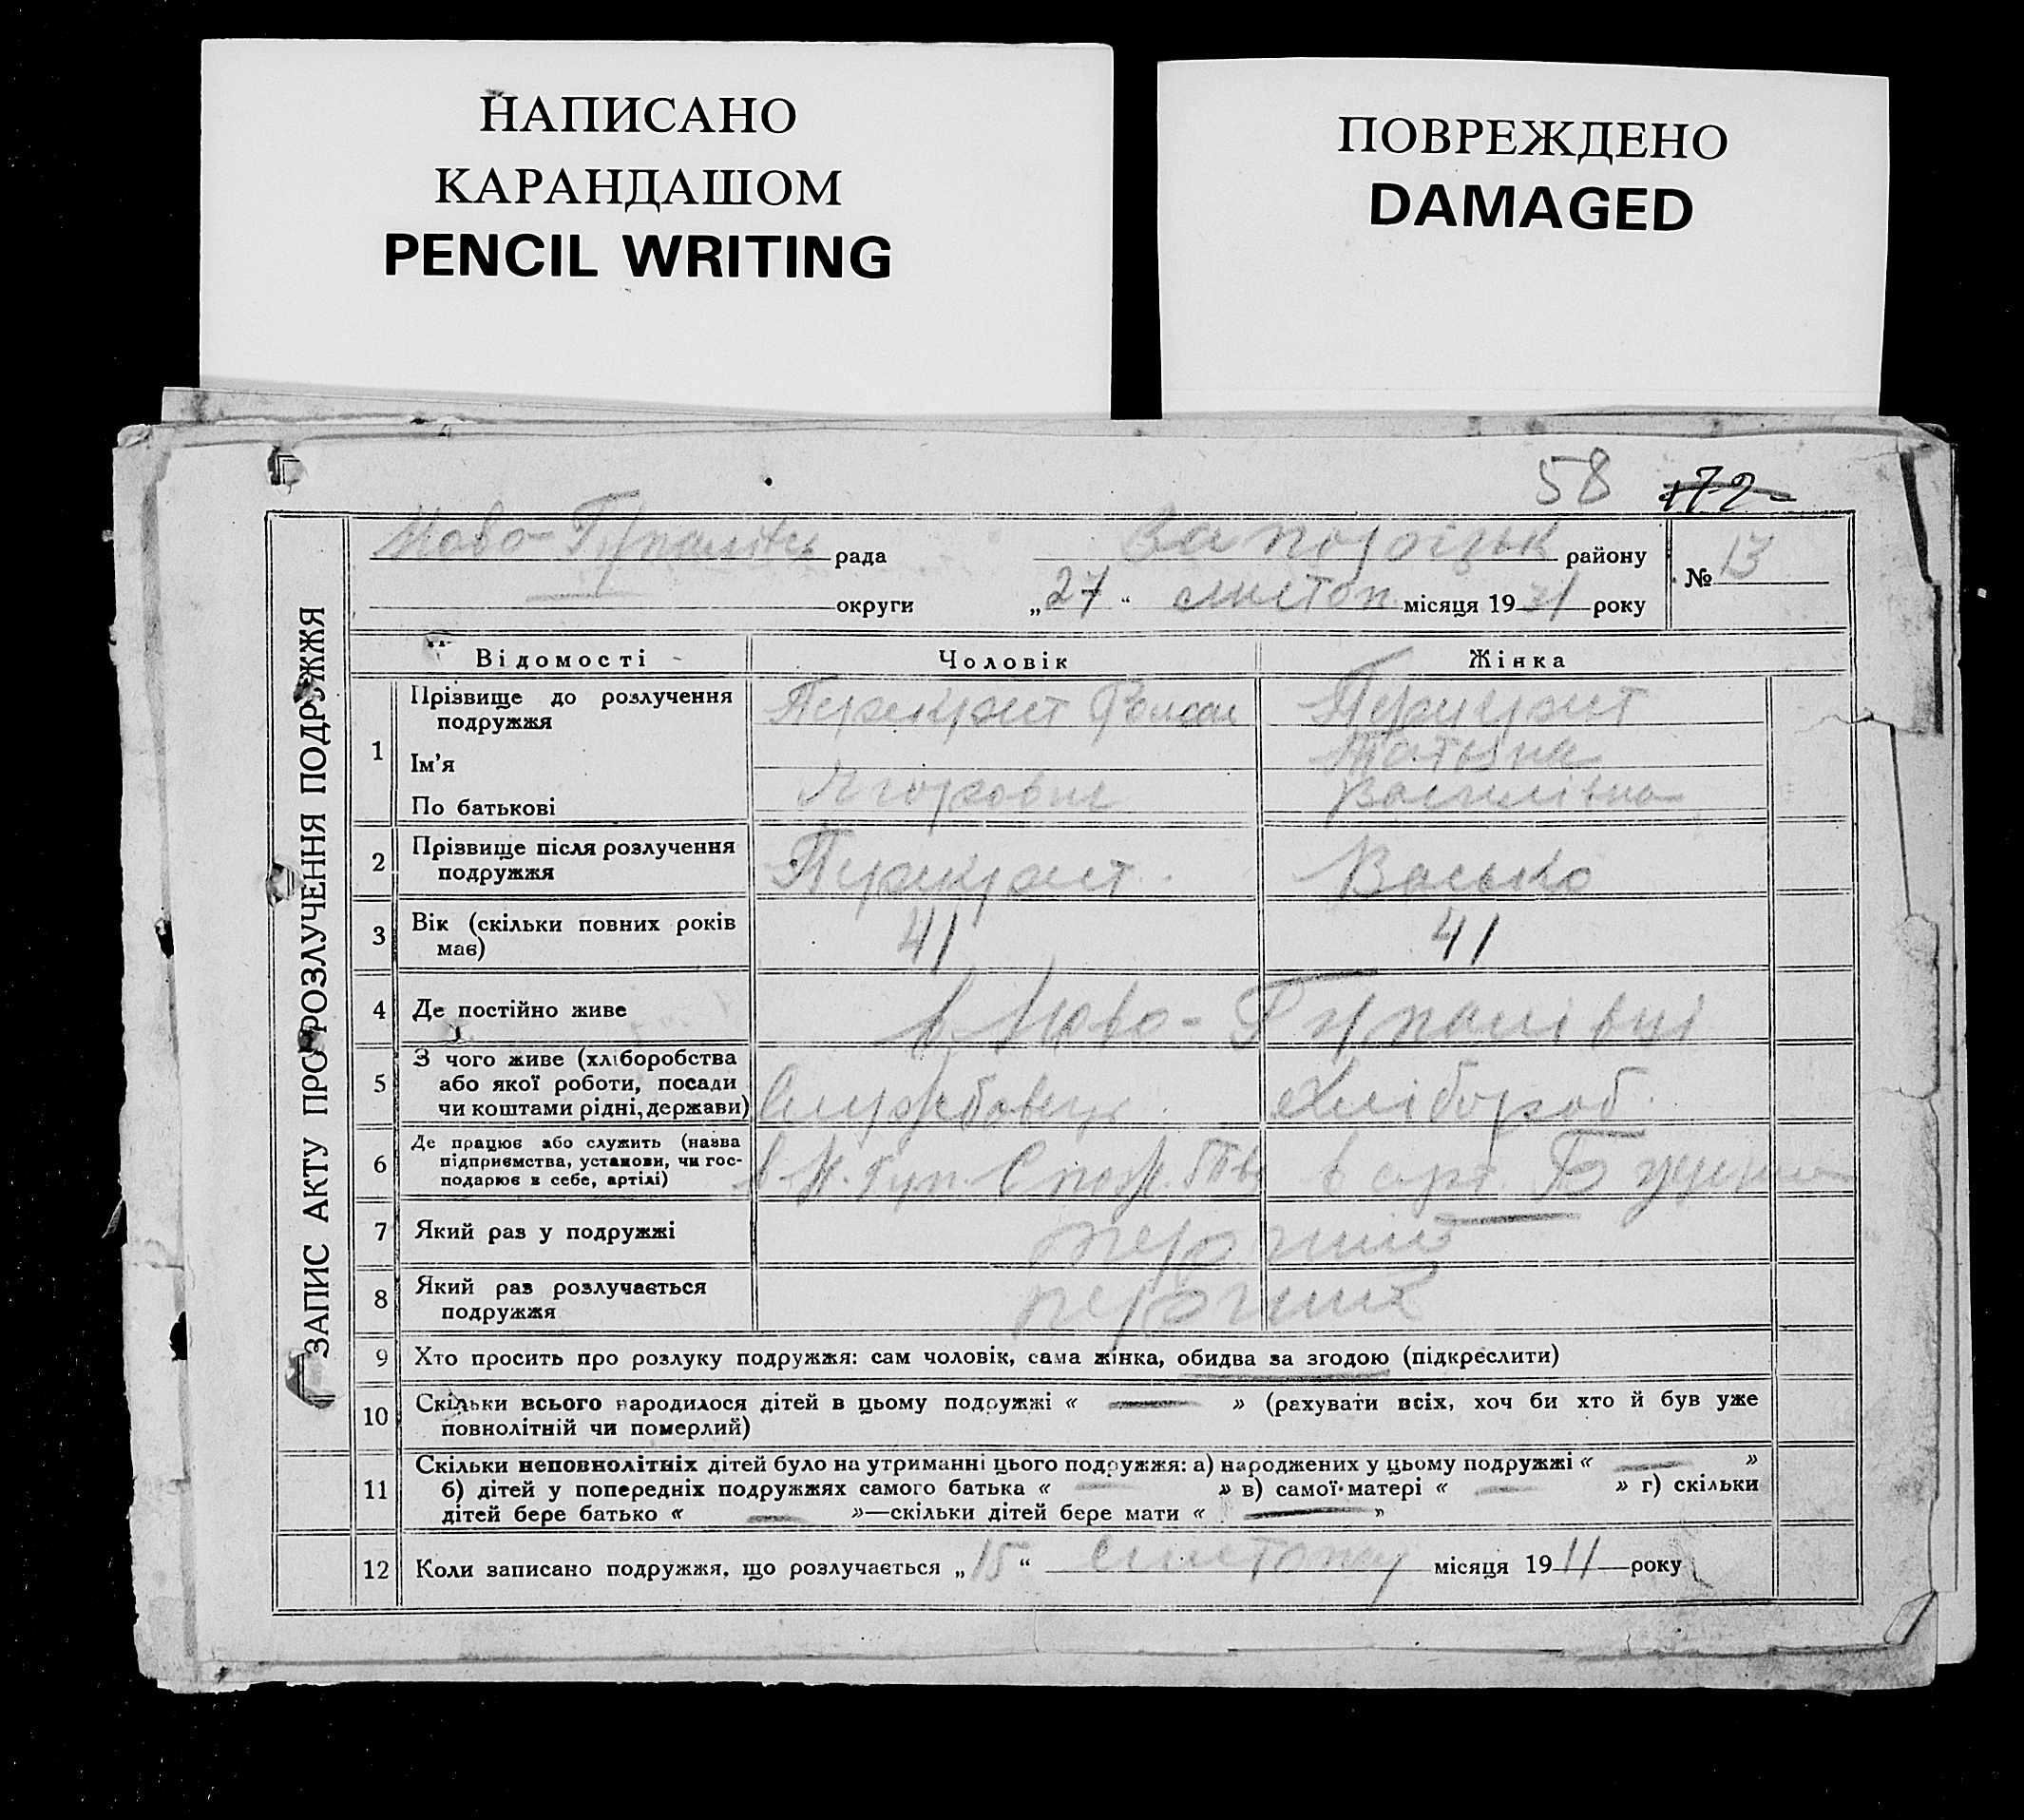 НАПИСАНО
КАРАНДАШОМ
PENCIL WRITING
ПОВРЕЖДЕНО
DAMAGED
58 172
ЗАПИС АКТУ ПРО РОЗЛУЧЕННЯ ПОДРУЖЖЯ
рада
району
№ 13
округи „27“ листоп місяця 1931 року
Відомості Чоловік Жінка
1 Прізвище до розлучення подружжя
Перехрест Перехрест
Ім’я Татьяна
По батькові Ягорович Василівна
2 Прізвище після розлучення
подружжя
Перехрест Васько
3 Вік (скільки повних років
має)
41 41
4 Де постійно живе
в Ново-Гупалівці
5 З чого живе (хліборобства
або якої роботи, посади
чи коштами рідні, держави)
Службовець Хлібороб.
6 Де працює або служить (назва
підприємства, установи, чи гос-
подарює в себе, артілі)
в Н. Гуп. Спож. Т-ві в арт.
7 Який раз у подружжі
перший
8 Який раз розлучається
подружжя
перший
9 Хто просить про розлуку подружжя: сам чоловік, сама жінка, обидва за згодою (підкреслити)
10 Скільки всього народилося дітей в цьому подружжі « — » (рахувати всіх, хоч би хто й був уже
повнолітній чи померлий)
11 Скільки неповнолітніх дітей було на утриманні цього подружжя: а) народжених у цьому подружжі « — »
б) дітей у попередніх подружжях самого батька « — » в) самої матері « — » г) скільки
дітей бере батько « — »—скільки дітей бере мати « — »
12 Коли записано подружжя, що розлучається „15“ листопад місяця 1911 року